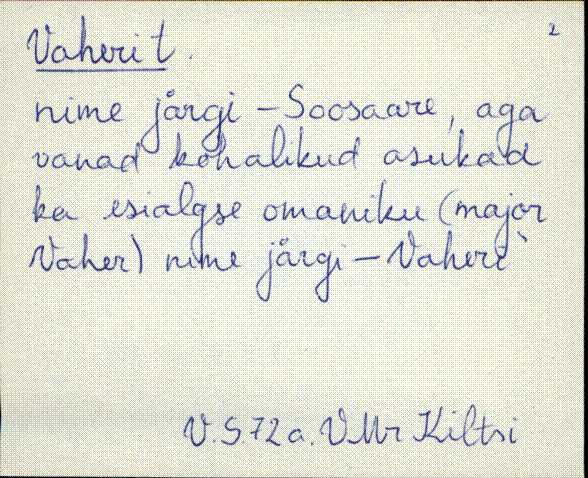 2
Vaheri t.
nime järgi – Soosaare, aga
vanad kohalikud asukad
ka esialgse omaniku (major
Vaher) nime järgi – Vaheri`
V.S.72a. VMr Kiltsi